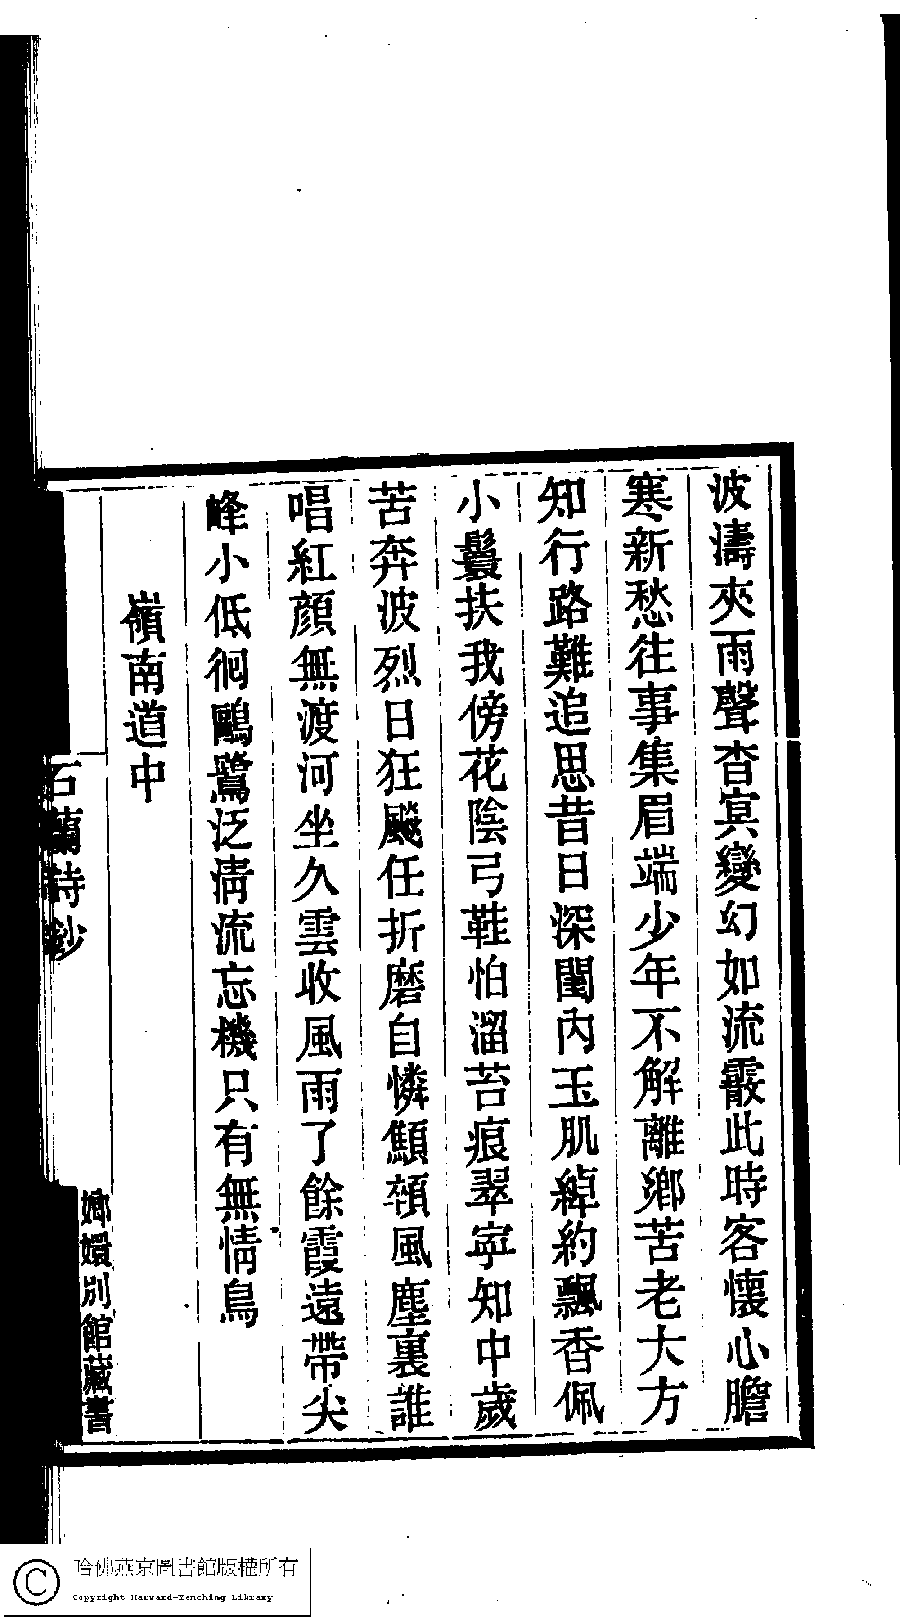 波濤夾雨聲杳冥變幻如流霰此時客懷心膽
寒新愁往事集眉端少年不解離鄉苦老大方
知行路難追思昔日深閨內玉肌綽約飄香佩
小鬟扶我傍花陰弓鞋怕溜苔痕翠寧知中歲
苦奔波烈日狂飈任折磨自憐顦顇風塵裏誰
唱紅顏無渡河坐久雲收風雨了餘霞遠帶尖
峰小低徊鷗鷺泛清流忘機只有無情鳥
嶺南道中
石蘭詩鈔
嫏嬛別館藏書
哈佛燕京圖書館版權所有
Copyright Harvard-Yenching Library